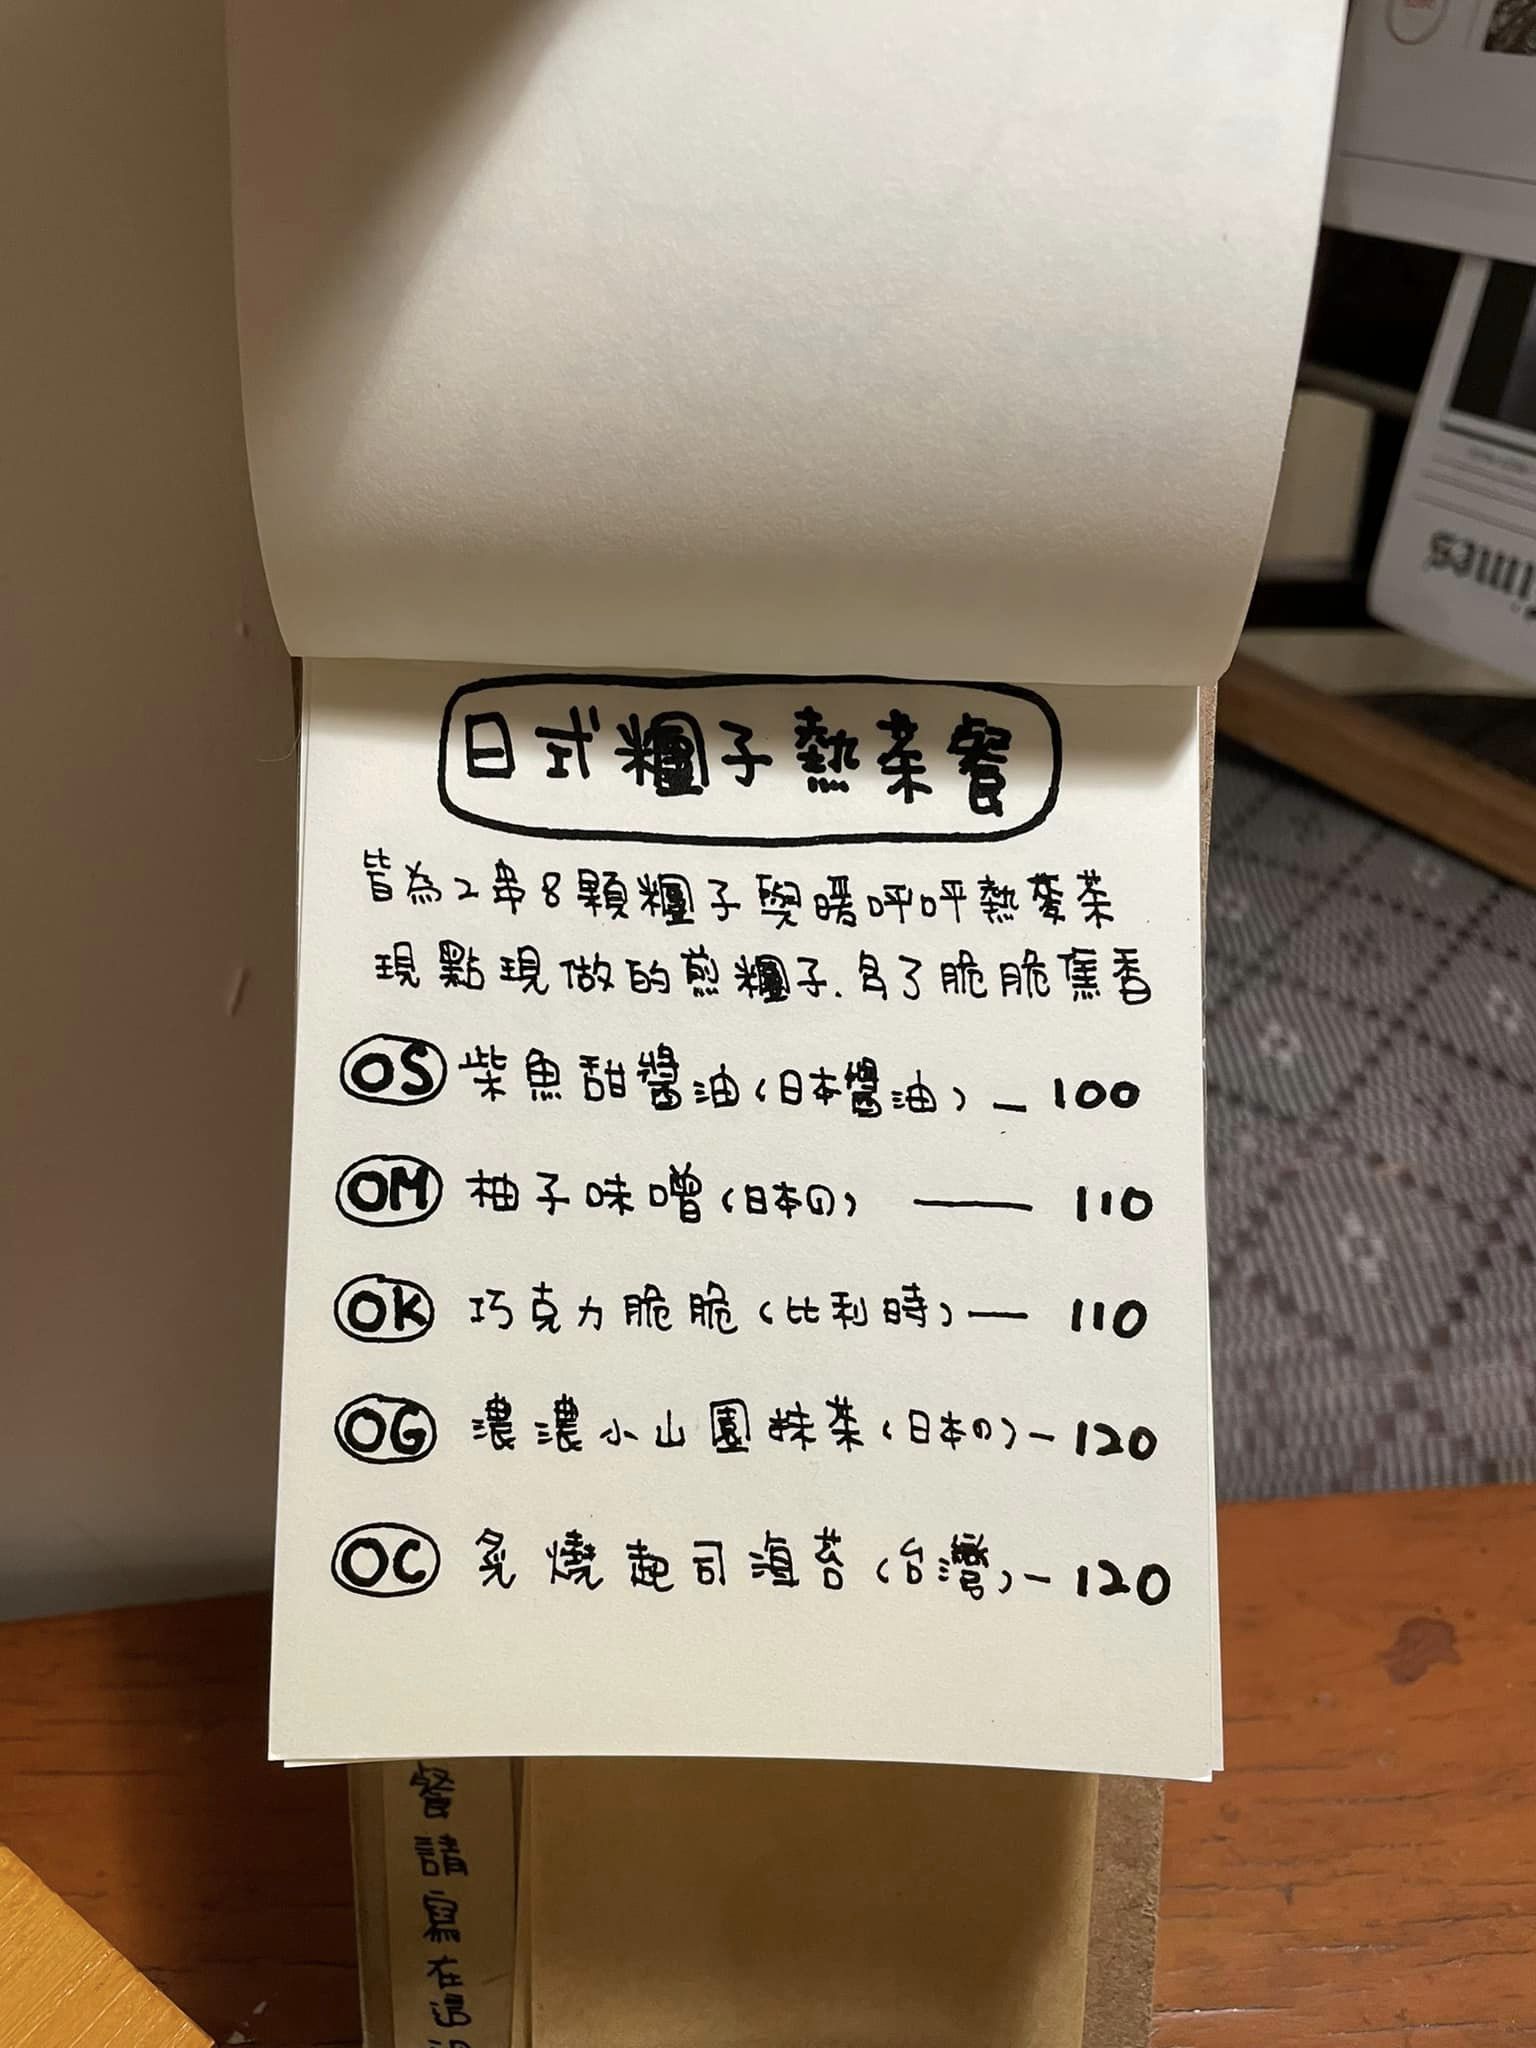 日式糰子熱茶餐
皆為2串8顆糰子與暖呼呼熱麥茶
現點現做的煎糰子、多了脆脆焦香
OS 柴魚甜醬油(日本醬油) — 100
OM 柚子味噌(日本の) —— 110
OK 巧克力脆脆(比利時) — 110
OG 濃濃小山園抹茶(日本の) — 120
OC 炙燒起司海苔(台灣) — 120
餐請寫在這
imes